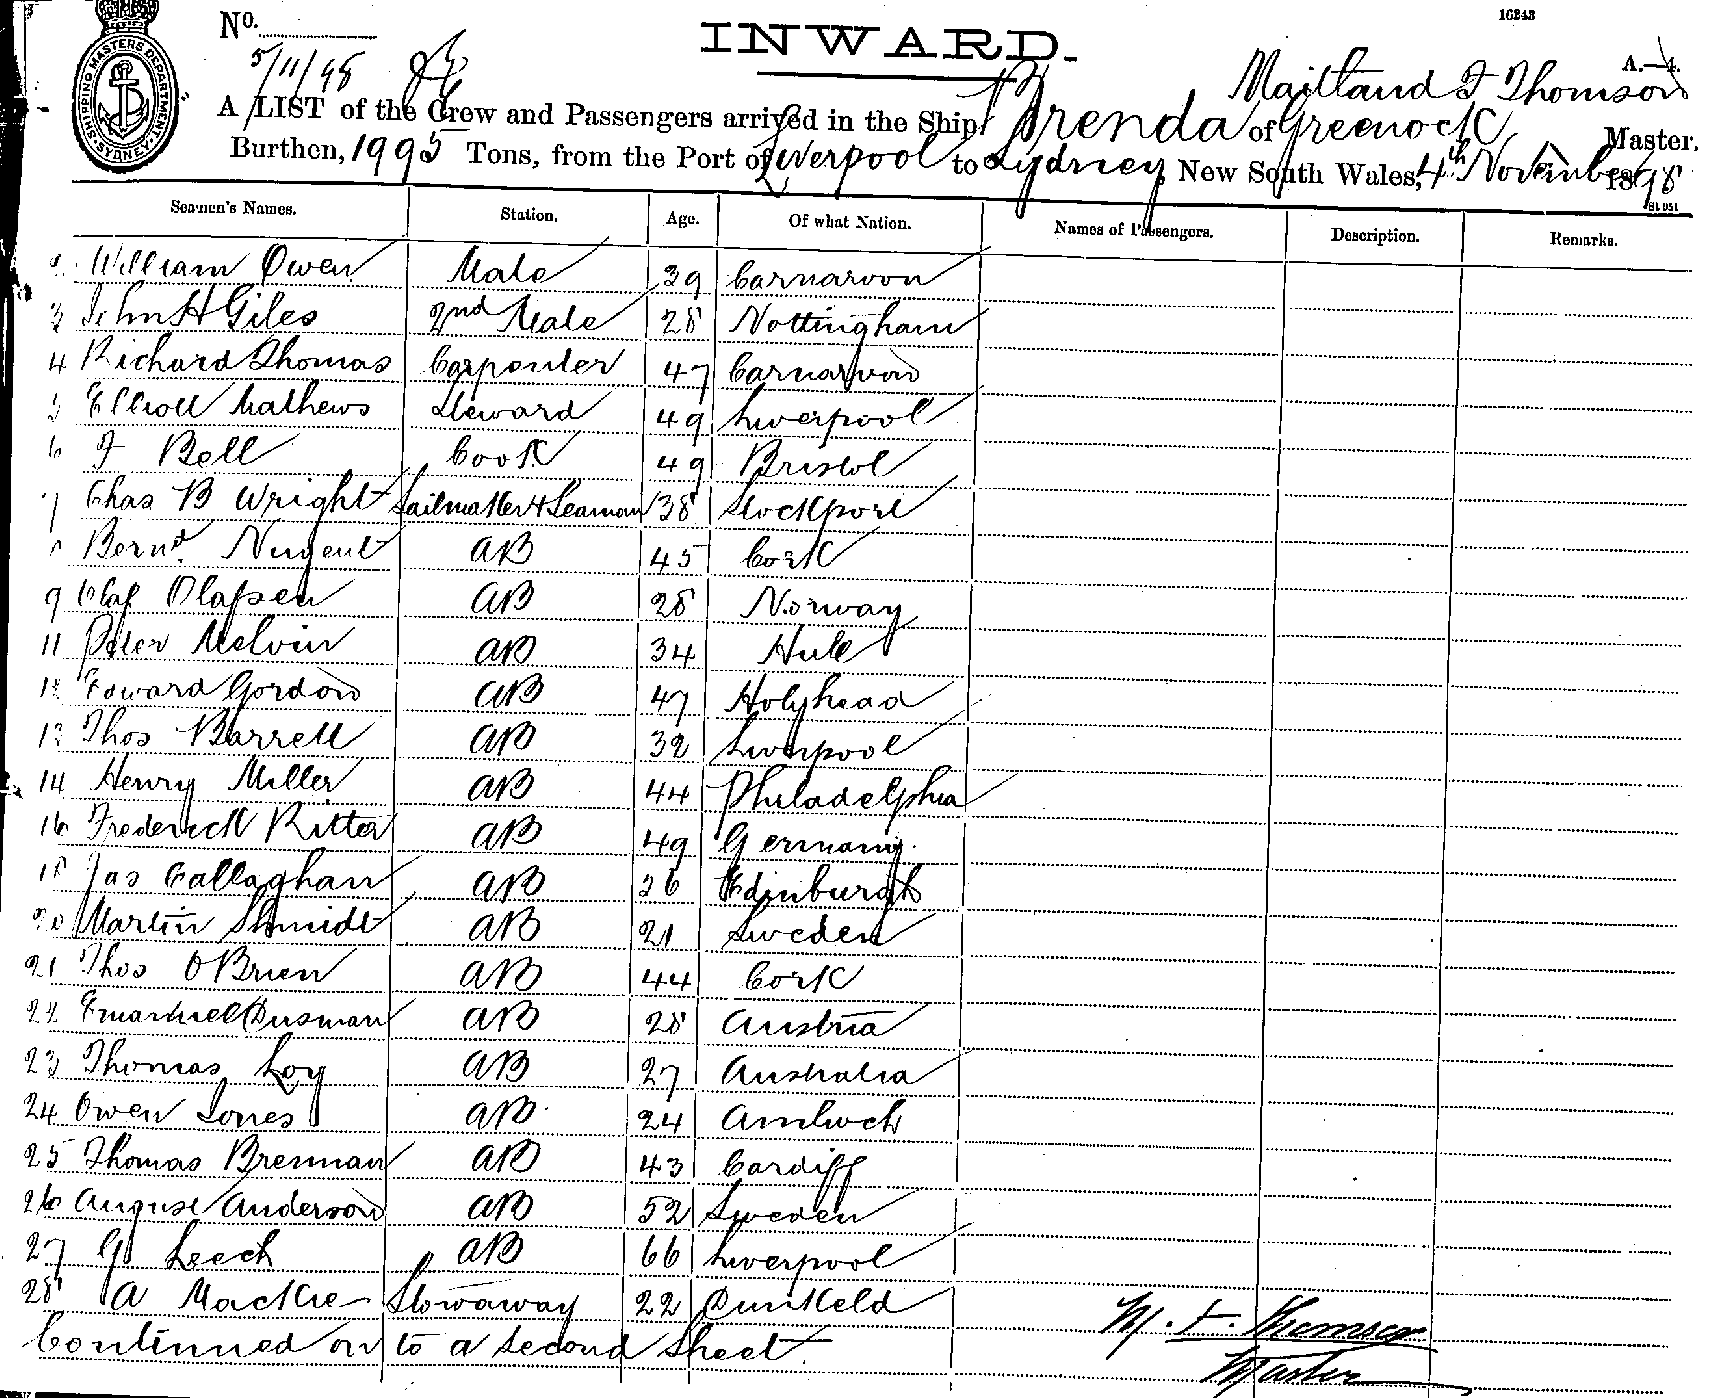 16243
No.
INWARD.
5/11/98
A.—4.
Maitland F Thomson
A LIST of the Crew and Passengers arrived in the Ship Brenda of Greenock Master.
Burthen, 1995 Tons, from the Port of Liverpool to Sydney New South Wales, 4th November 1898
SHIPPING MASTERS DEPARTMENT SYDNEY
Seamen's Names. Station. Age. Of what Nation. Names of Passengers. Description. Remarks.
2 William Owen Mate 39 Carnarvon
3 John H Giles 2nd Mate 28 Nottingham
4 Richard Thomas Carpenter 47 Carnarvon
5 Elliott Mathews Steward 49 Liverpool
6 F Bell Cook 49 Bristol
7 Chas B Wright Sailmaker & Seaman 38 Stockport
Bernd. Nugent AB 45 Cork
9 Olaf Olafsen AB 28 Norway
11 Peter Melvin AB 34 Hull
12 Edward Gordon AB 47 Holyhead
13 Thos Barrett AB 32 Liverpool
14 Henry Miller AB 44 Philadelphia
16 Frederick Ritter AB 49 Germany.
18 Jas Callaghan AB 36 Edinburgh
20 Martin Shmidt AB 21 Sweden
21 Thos OBrien AB 44 Cork
22 AB 28 Austria
23 Thomas Loy AB 27 Australia
24 Owen Jones AB 24 Amlwch
25 Thomas Brennan AB 43 Cardiff
26 August Anderson AB 52 Sweden
27 G Leech AB 66 Liverpool
28 A Mackie Stowaway 22 Dunkeld
Continued on to a second sheet.
M. F. Thomson
Master